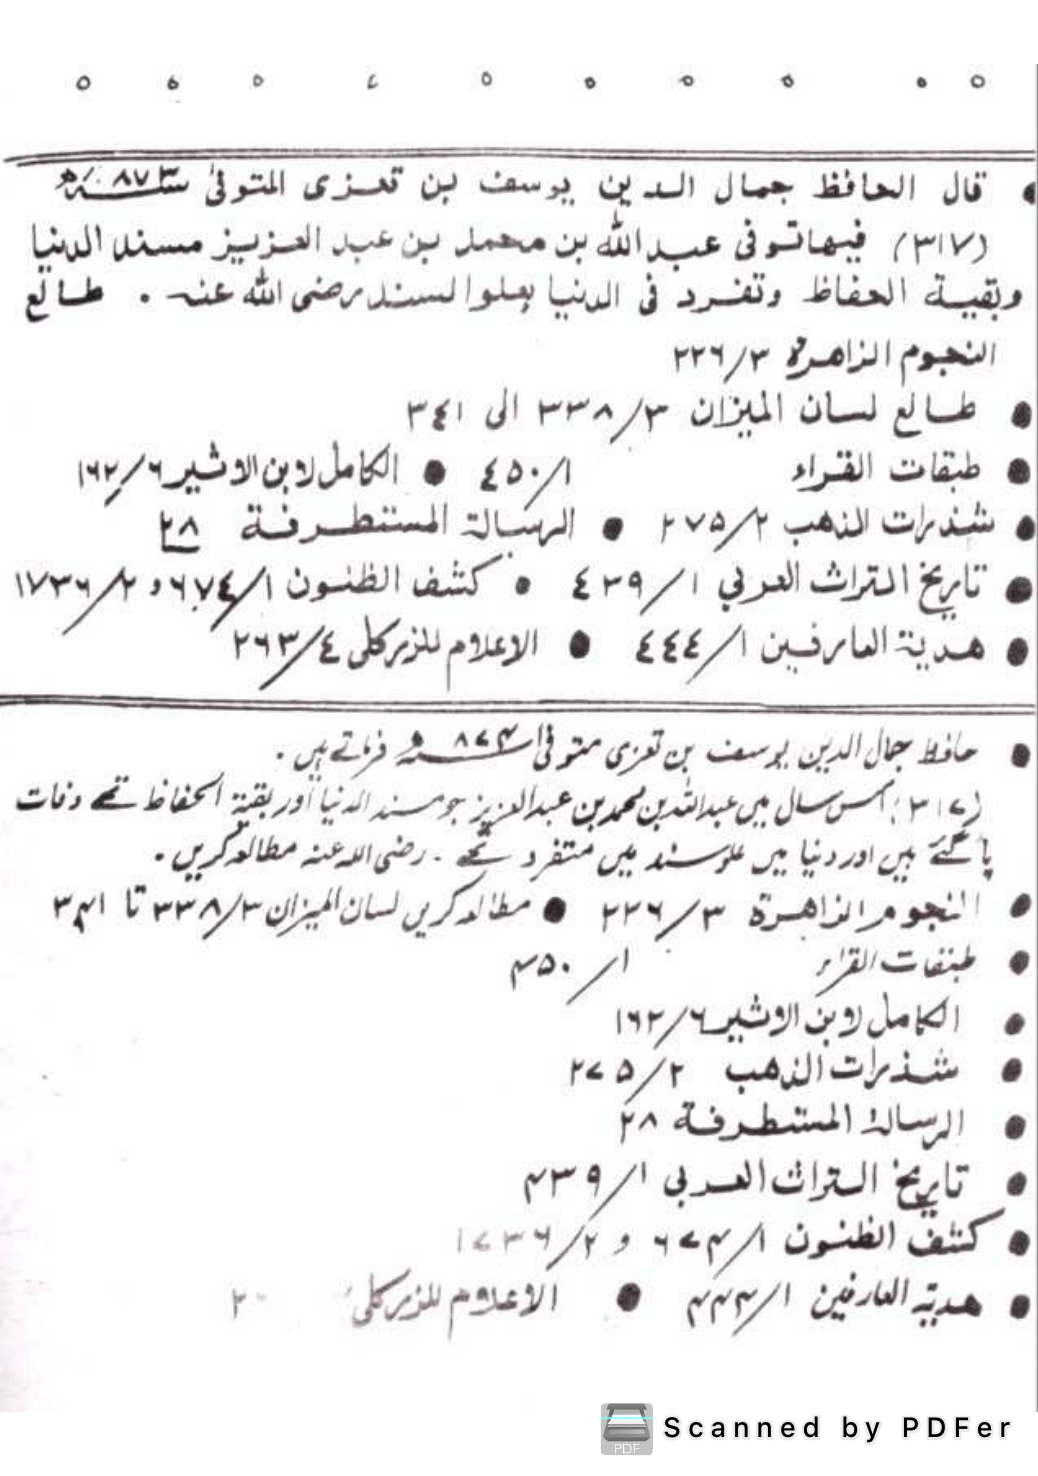 قال الحافظ جمال الدين يوسف بن تعزى المتوفى سنة ٨٧٣ھ
(٣١٧) فيها توفى عبد الله بن محمد بن عبد العزيز مسند الدنيا
وبقية الحفاظ وتفرد فى الدنيا بعلو السند رضى الله عنه . طالع
النجوم الزاهرة ٣/٢٢٦
● طالع لسان الميزان ٣/٣٣٨ الى ٣٤١
● طبقات القراء ١/٤٥٠ ● الكامل لابن الاثير ٦/١٦٢
● شذرات الذهب ٢/٢٧٥ ● الرسالة المستطرفة ٢٨
● تاريخ التراث العربي ١/٤٣٩ ● كشف الظنون ١/٦٧٤ و ٢/١٧٣٦
● هدية العارفين ١/٤٤٤ ● الاعلام للزركلى ٤/٢٦٣
● حافظ جمال الدین یوسف بن تعزی متوفی ۸۷۴ھ فرماتے ہیں .
(۳۱۷) اس سال میں عبداللہ بن محمد بن عبدالعزیز جو مسند الدنیا اور بقیۃ الحفاظ تھے وفات
پا گئے ہیں اور دنیا میں علو سند میں متفرد تھے . رضی اللہ عنہ مطالعہ کریں .
● النجوم الزاهرة ۳/۲۲۶ ● مطالعہ کریں لسان المیزان ۳/۳۳۸ تا ۳۴۱
● طبقات القراء ۱/۴۵۰
● الكامل لابن الاثير ۶/۱۶۲
● شذرات الذهب ۲/۲۷۵
● الرسالة المستطرفة ۲۸
● تاريخ التراث العربي ۱/۴۳۹
● كشف الظنون ۱/۶۷۴ و ۲/۱۷۳۶
● هدية العارفين ۱/۴۴۴ ● الاعلام للزركلى
PDF
Scanned by PDFer